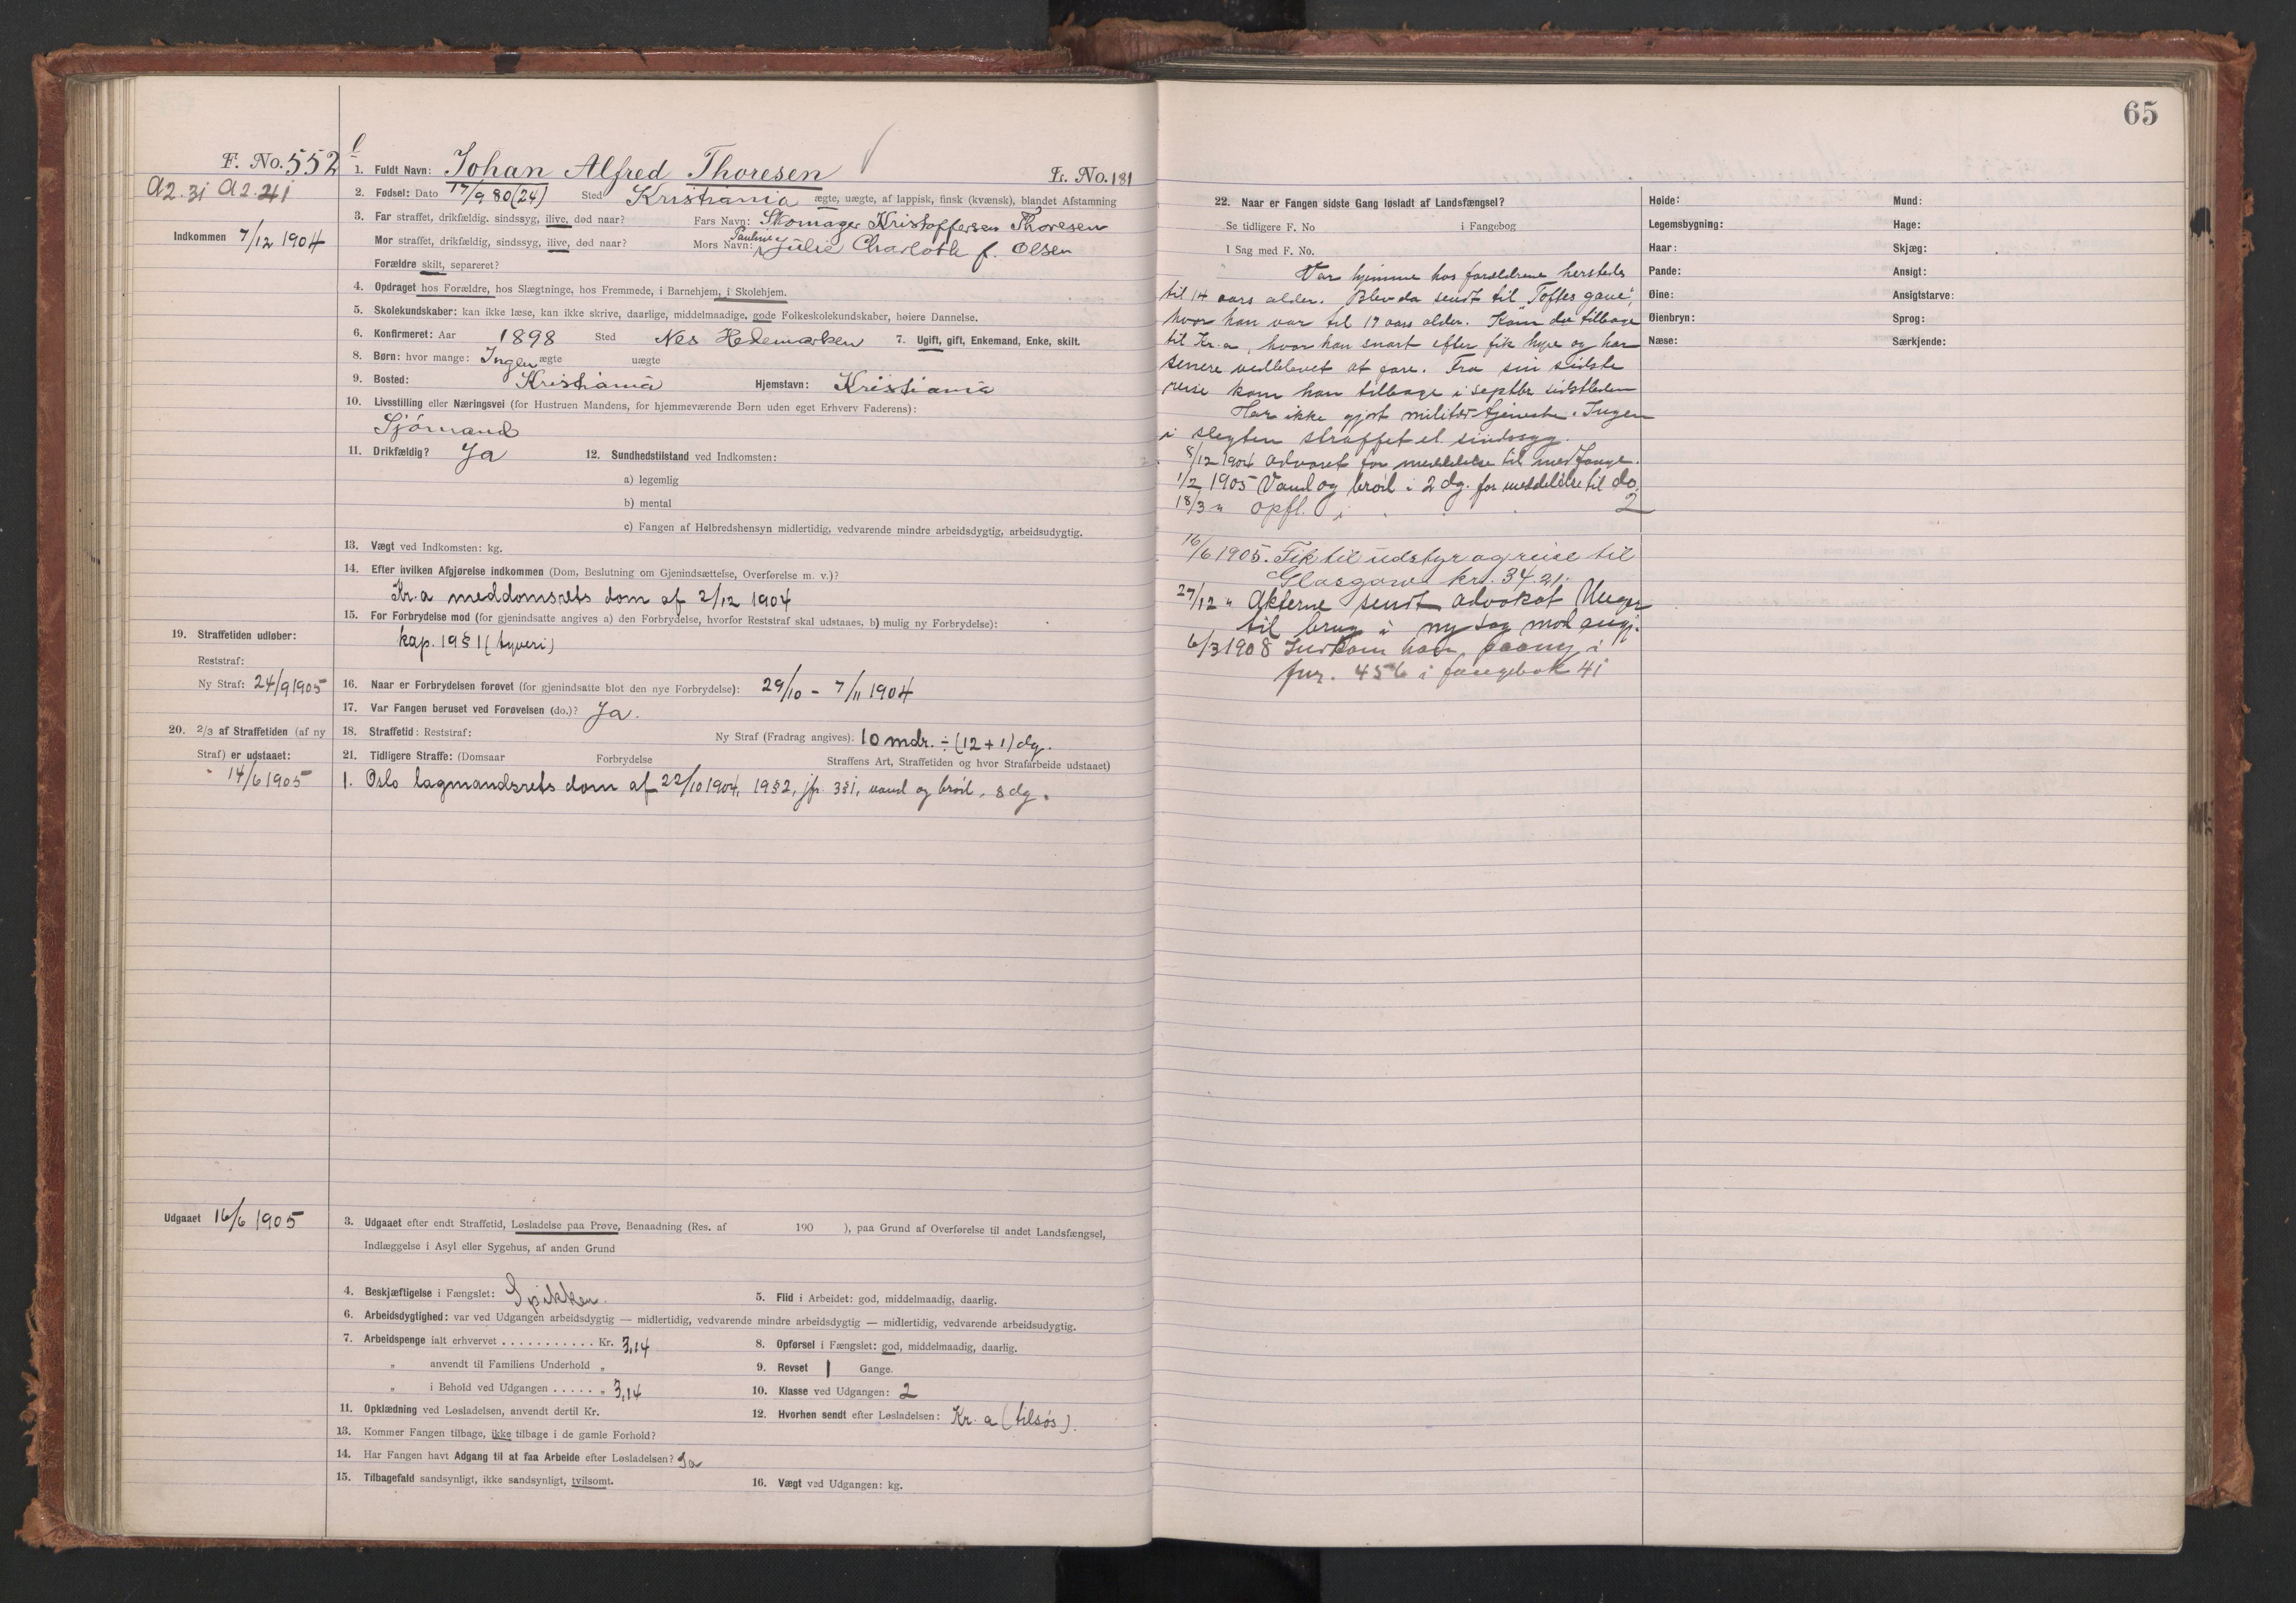 F. No. 552
A2. 3i A2. 4i
Indkommen 7/12 1904
1. Fuldt Navn: Johan Alfred Thoresen L. No. 181
2. Fødsel: Dato 17/9 80 (24) Sted Kristiania ægte, uægte, af lappisk, finsk (kvænsk), blandet Afstamning
3. Far straffet, drikfældig, sindssyg, ilive, død naar? Fars Navn: Skomager Kristoffersen Thoresen
Mor straffet, drikfældig, sindssyg, ilive, død naar? Mors Navn: Pauline Julie Charlotte f. Olsen
Forældre skilt, separeret?
4. Opdraget hos Forældre, hos Slægtninge, hos Fremmede, i Barnehjem, i Skolehjem.
5. Skolekundskaber: kan ikke læse, kan ikke skrive, daarlige, middelmaadige, gode Folkeskolekundskaber, høiere Dannelse.
6. Konfirmeret: Aar 1898 Sted Nes Hedemarken 7. Ugift, gift, Enkemand, Enke, skilt.
8. Børn: hvor mange: Ingen ægte uægte
9. Bosted: Kristiania Hjemstavn: Kristiania
10. Livsstilling eller Næringsvei (for Hustruen Mandens, for hjemmeværende Børn uden eget Erhverv Faderens):
Sjømand
11. Drikfældig? Ja 12. Sundhedstilstand ved Indkomsten:
a) legemlig
b) mental
c) Fangen af Helbredshensyn midlertidig, vedvarende mindre arbeidsdygtig, arbeidsudygtig.
13. Vægt ved Indkomsten: kg.
14. Efter hvilken Afgjørelse indkommen (Dom, Beslutning om Gjenindsættelse, Overførelse m. v.)?
Kr.a meddomsrets dom af 2/12 1904
15. For Forbrydelse mod (for gjenindsatte angives a) den Forbrydelse, hvorfor Reststraf skal udstaaes, b) mulig ny Forbrydelse):
kap. 19 § 1 (tyveri)
19. Straffetiden udløber:
Reststraf:
Ny Straf: 24/9 1905
16. Naar er Forbrydelsen forøvet (for gjenindsatte blot den nye Forbrydelse): 29/10 - 7/11 1904
17. Var Fangen beruset ved Forøvelsen (do.)? Ja.
20. 2/3 af Straffetiden (af ny
Straf) er udstaaet:
14/6 1905
18. Straffetid: Reststraf: Ny Straf (Fradrag angives): 10 mdr. ÷ (12 + 1) dg.
21. Tidligere Straffe: (Domsaar Forbrydelse Straffens Art, Straffetiden og hvor Strafarbeide udstaaet)
1. Oslo lagmandsrets dom af 22/10 1904, 19 § 2, jfr. 3 § 1, vand og brød, 8 dg.
Udgaaet 16/6 1905
3. Udgaaet efter endt Straffetid, Løsladelse paa Prøve, Benaadning (Res. af 190 ), paa Grund af Overførelse til andet Landsfængsel,
Indlæggelse i Asyl eller Sygehus, af anden Grund
4. Beskjæftigelse i Fængslet: Spikker. 5. Flid i Arbeidet: god, middelmaadig, daarlig.
6. Arbeidsdygtighed: var ved Udgangen arbeidsdygtig — midlertidig, vedvarende mindre arbeidsdygtig — midlertidig, vedvarende arbeidsudygtig.
7. Arbeidspenge ialt erhvervet . . . . . . . . . . . Kr. 3,14 8. Opførsel i Fængslet: god, middelmaadig, daarlig.
„ anvendt til Familiens Underhold „ 9. Revset 1 Gange.
„ i Behold ved Udgangen . . . . . „ 3,14 10. Klasse ved Udgangen: 2
11. Opklædning ved Løsladelsen, anvendt dertil Kr. 12. Hvorhen sendt efter Løsladelsen: Kr. a (tilsøs).
13. Kommer Fangen tilbage, ikke tilbage i de gamle Forhold?
14. Har Fangen havt Adgang til at faa Arbeide efter Løsladelsen? Ja
15. Tilbagefald sandsynligt, ikke sandsynligt, tvilsomt. 16. Vægt ved Udgangen: kg.
65
22. Naar er Fangen sidste Gang løsladt af Landsfængsel?
Se tidligere F. No i Fangebog
I Sag med F. No.
Var hjemme hos forældrene hersteds
til 14 aars alder. Blev da sendt til "Toftes gave",
hvor han var til 17 aars alder. Kom da tilbage
til Kr.a, hvor han snart efter fik hyre og har
senere vedblevet at fare. Fra sin sidste
reise kom han tilbage i septbr. sidstleden
Har ikke gjort militærtjeneste. Ingen
i slegten straffet el. sindssyg.
8/12 1904 advaret for meddelelse til medfange.
1/2 1905 Vand og brød i 2 dg. for meddelelse til do.
18/3 " opfl. i 2
16/6 1905. Fik til udstyr og reise til
Glasgow kr. 34.21.
27/12 " Akterne sendt advokat
til brug i ny sag mod angj.
6/3 1908 Indkom han paany i
fnr. 456 i fangebok 4i
Høide:
Legemsbygning:
Haar:
Pande:
Øine:
Øienbryn:
Næse:
Mund:
Hage:
Skjæg:
Ansigt:
Ansigtsfarve:
Sprog:
Særkjende: